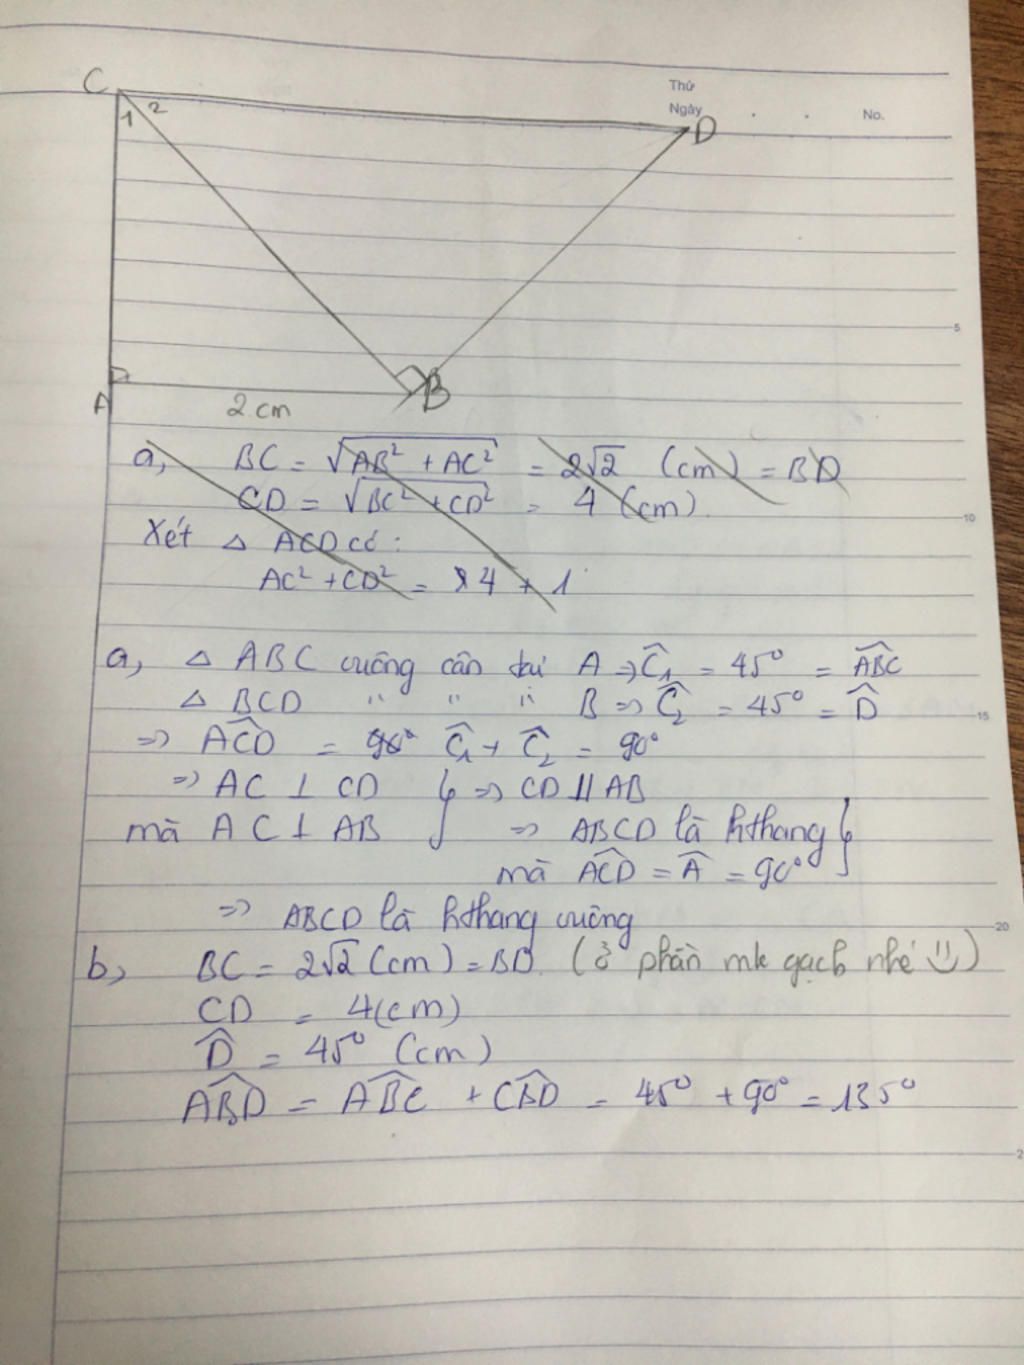 C
1 2
Thứ
Ngày
No.
D
5
A
B
2 cm
a, BC = √AB² + AC² = 2√2 (cm) = BD
CD = √BC² + CD² = 4 (cm)
10
Xét △ ACD có:
AC² + CD² = 84 + 1
a, △ ABC vuông cân tại A => Ĉ₁ = 45° = ABC
△ BCD " " " B => Ĉ₂ = 45° = D̂
15
=> ACD = 90° Ĉ₁ + Ĉ₂ = 90°
=> AC ⊥ CD } => CD // AB
mà AC ⊥ AB => ABCD là hthang }
mà ACD = Â = 90°
=> ABCD là hthang vuông
20
b, BC = 2√2 (cm) = BD (ở phần mk gạch nhé)
CD = 4(cm)
D̂ = 45° (cm)
ABD = ABC + CBD = 45° + 90° = 135°
2